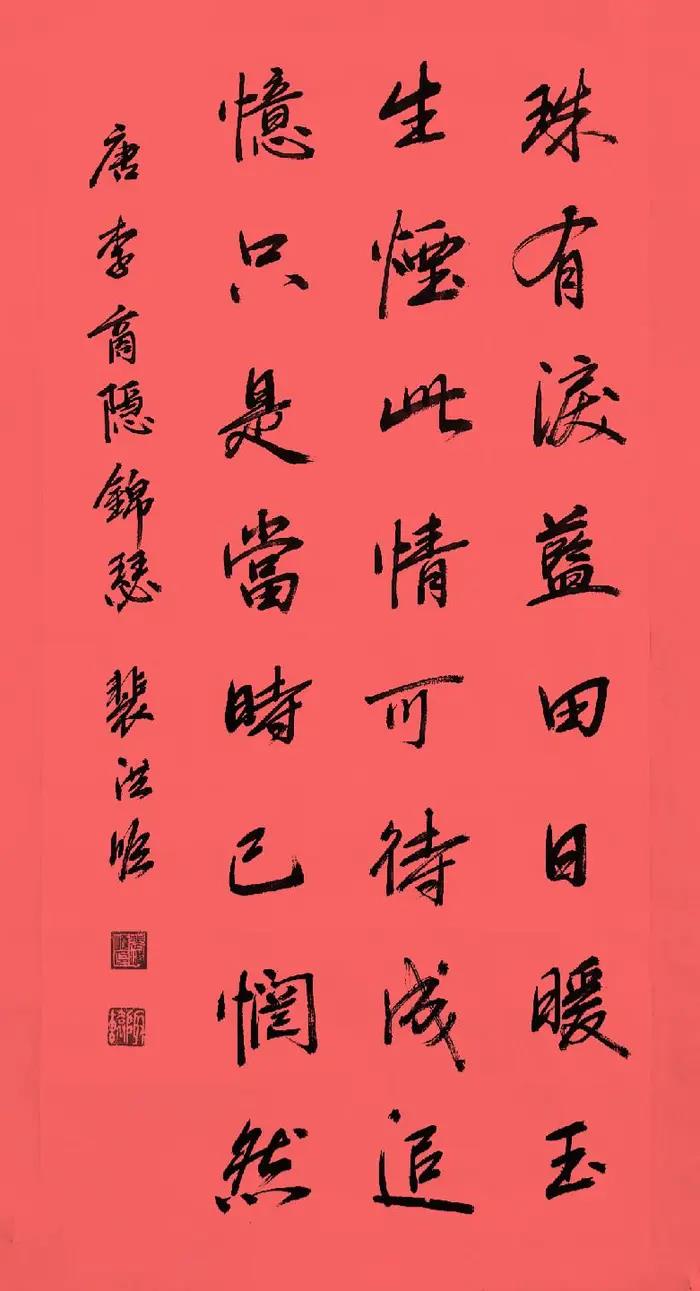 珠有淚藍田日暖玉
生煙此情可待成追
憶只是當時已惘然
唐李商隱錦瑟 裴洪